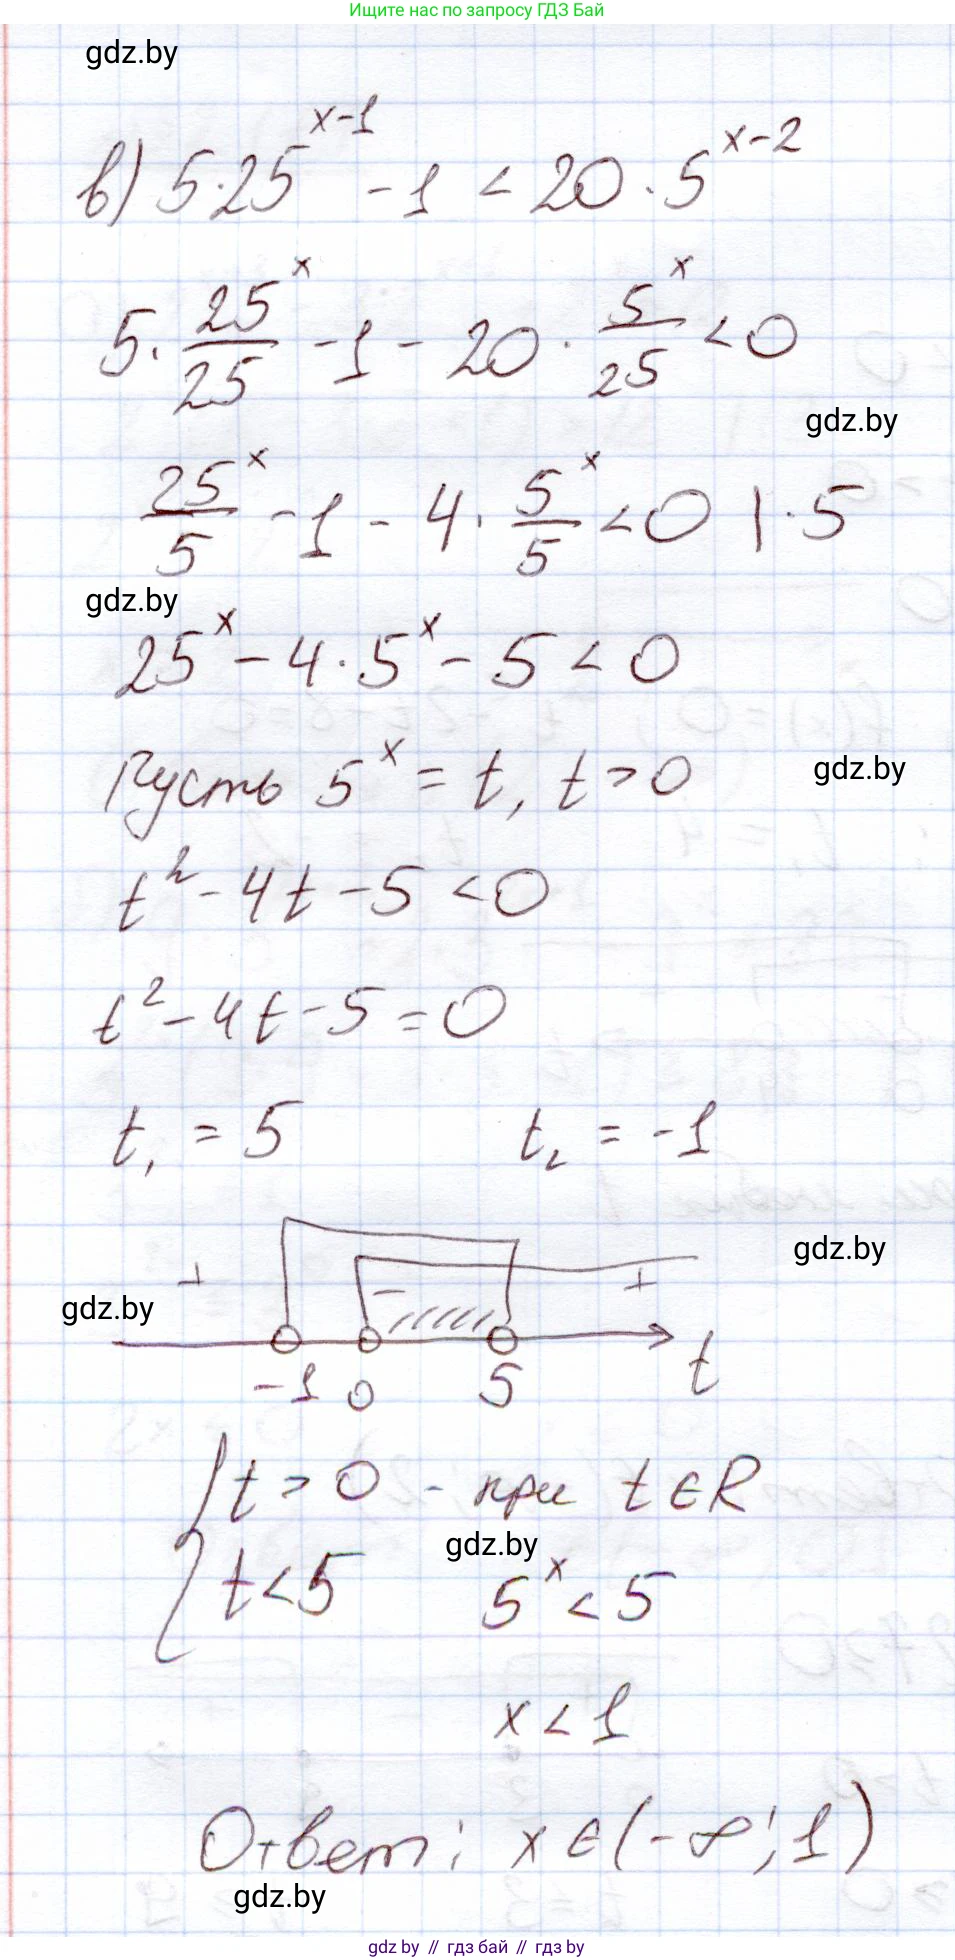 Ищите нас по запросу ГДЗ Бай
gdz.by
в) 5·25^(x-1) - 1 < 20·5^(x-2)
5· 25^x/25 - 1 - 20· 5^x/25 < 0
gdz.by
25^x/5 - 1 - 4· 5^x/5 < 0 |·5
gdz.by
25^x - 4·5^x - 5 < 0
Пусть 5^x = t, t > 0
gdz.by
t² - 4t - 5 < 0
t² - 4t - 5 = 0
t₁ = 5 t₂ = -1
gdz.by
+ - +
gdz.by
-1 0 5 t
{ t > 0 - при t ∈ R
gdz.by
t < 5 5^x < 5
x < 1
Ответ: x ∈ (-∞; 1)
gdz.by
gdz.by // гдз бай // gdz.by